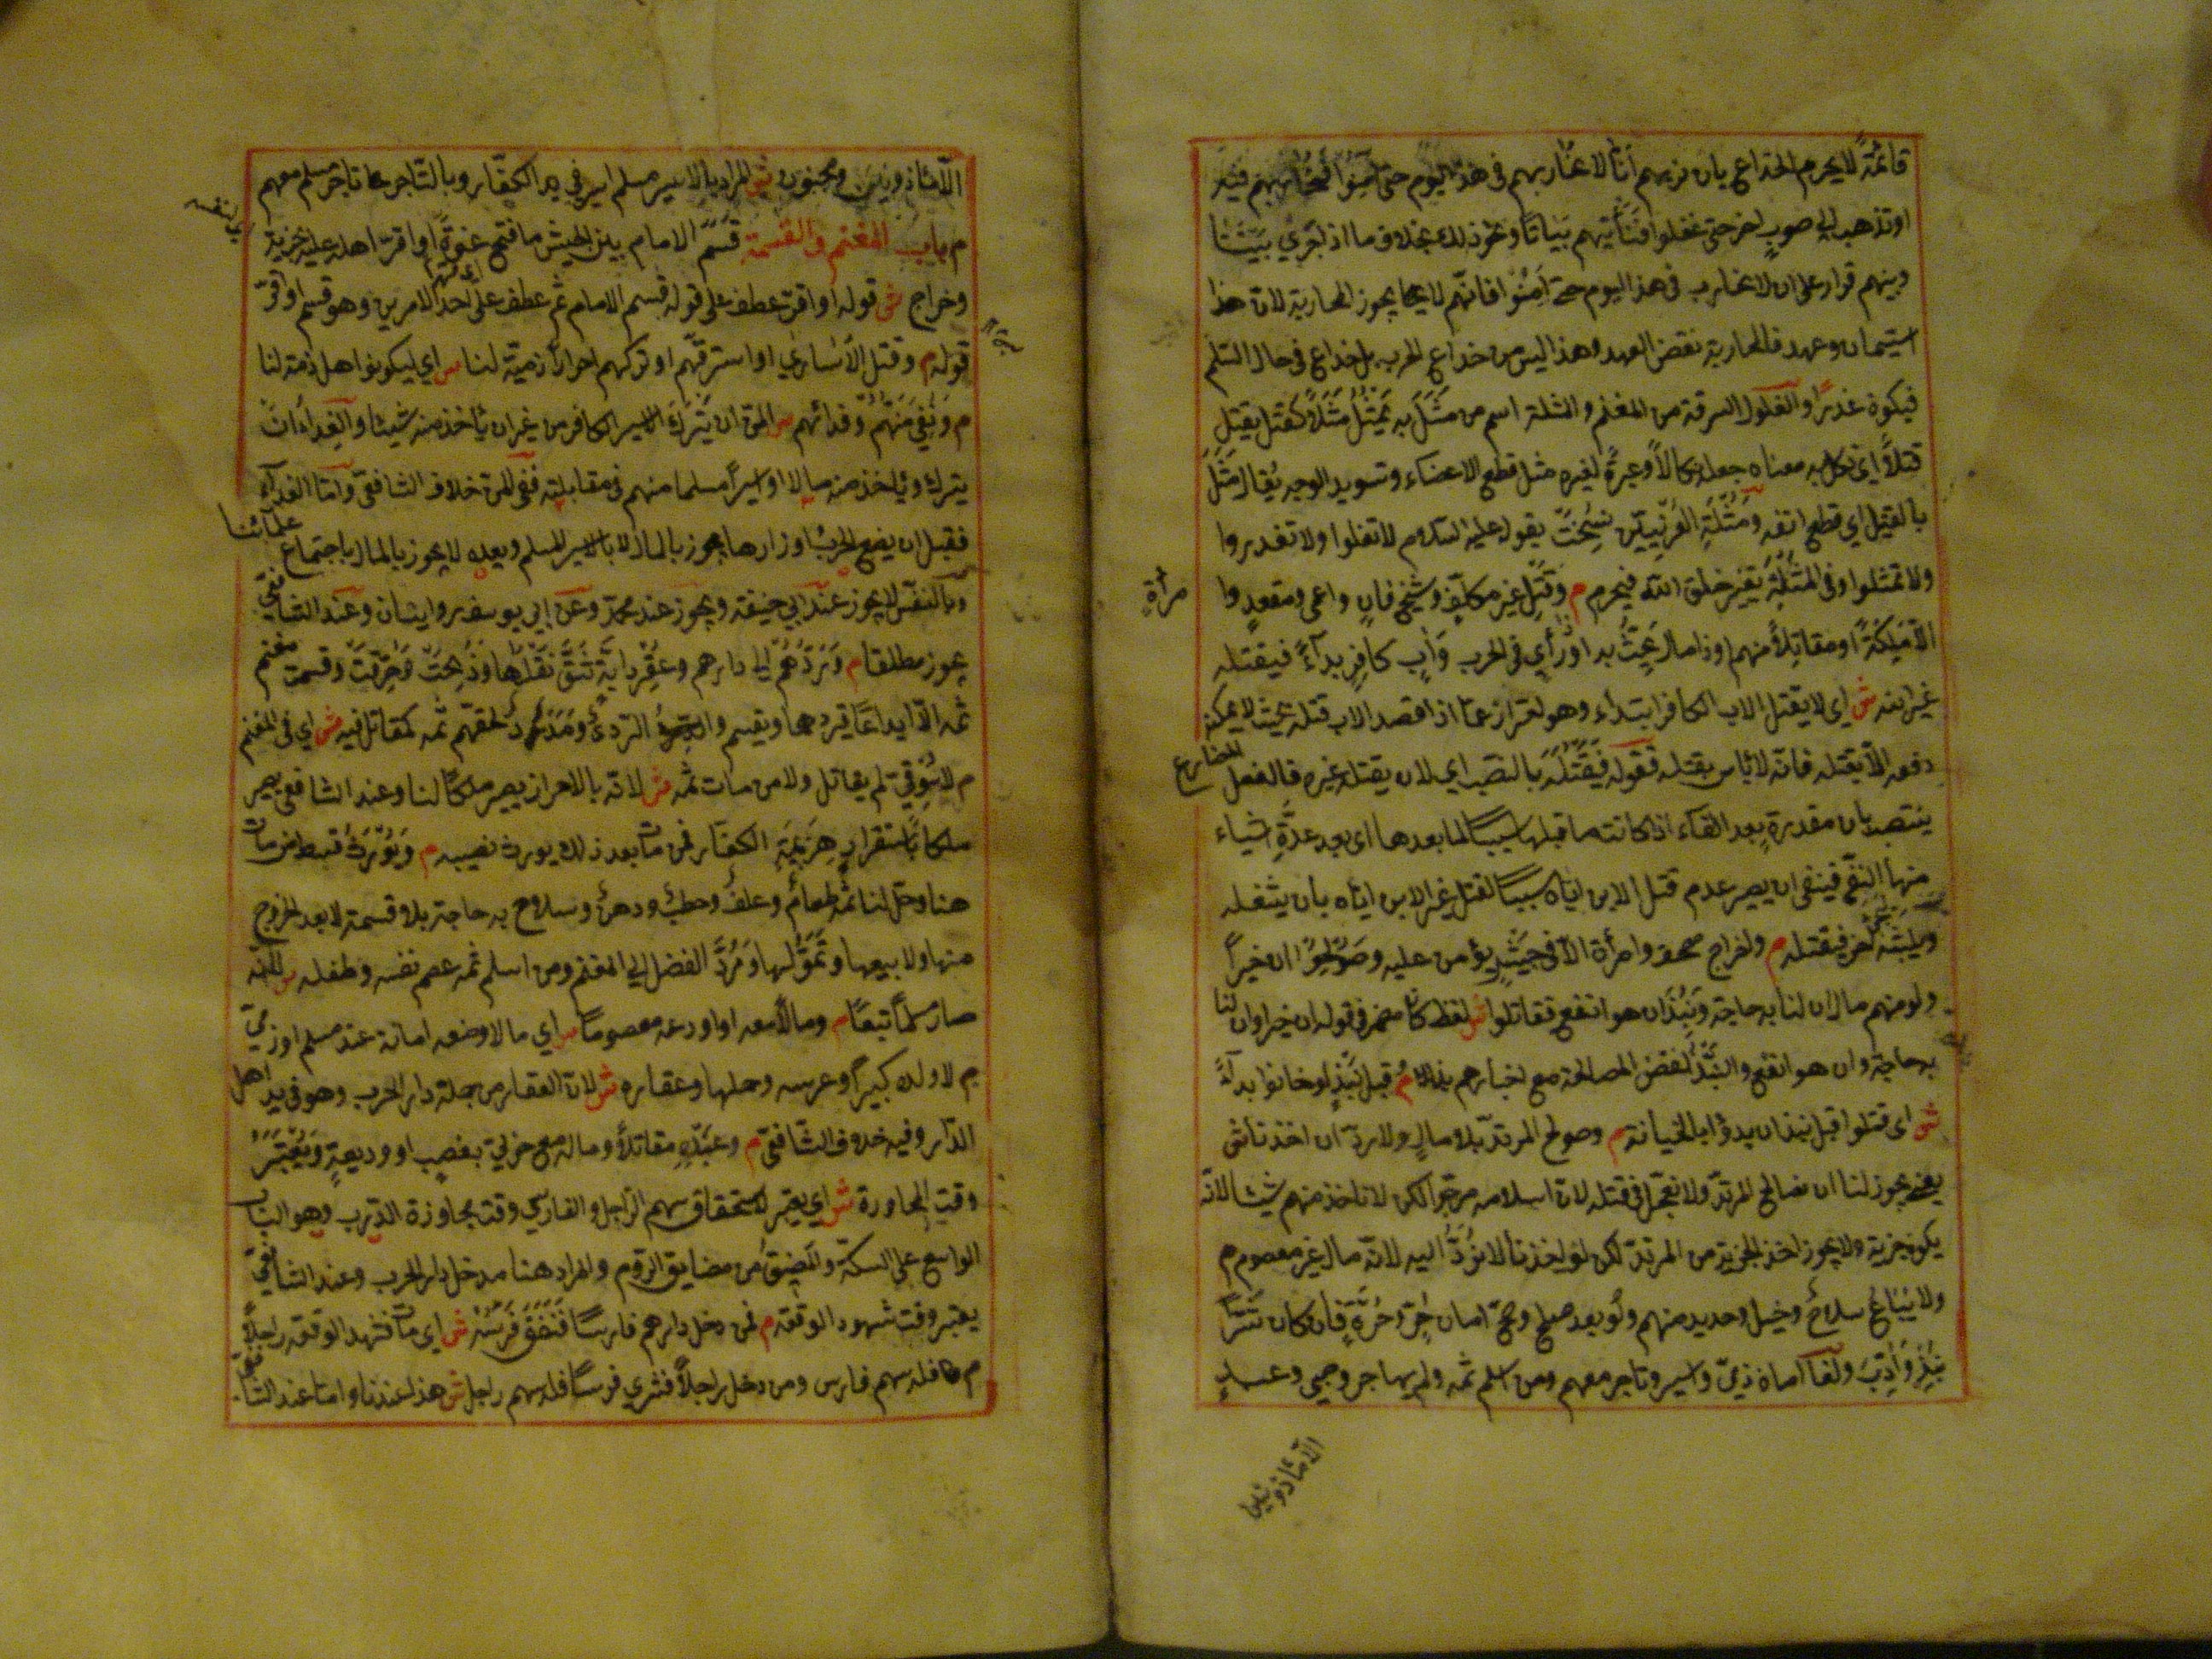 قائمة لا يحرم الخداع بان نريهم انا لا نحاربهم فى هذا اليوم حتى امنوا فنحاربهم فيه
او نذهب الى صوب اخر حتى غفلوا فنأتيهم بياتا ونحو ذلك بخلاف ما اذا جرى بيننا
وبينهم قرار على ان لا نحارب فى هذا اليوم حتى امنوا فانه لا يجوز المحاربة لان هذا
استيمان وعهد فالمحاربة نقض العهد وهذا ليس من خداع الحرب بل خداع فى حال السلم
فيكون غدرا والغلول السرقة من المغنم والمثلة اسم من مثل به يمثل مثلا كقتل يقتل
قتلا اى نكل به معناه جعله نكالا وعبرة لغيره مثل قطع الاعضاء وتسويد الوجه يقال مثل
بالقتيل اى قطع انفه ومثلة العرنيين نسخت بقوله عليه السلام لا تغلوا ولا تغدروا
ولا تمثلوا وفى المثلة تغيير خلق الله فيحرم م وقتل غير مكلف وشيخ فان واعمى ومقعد وا
مرأة
الا ملكة او مقاتلا منهم او ذا مال يحث به او رأى فى الحرب واب كافر بدآء فيقتله
غير ابنه ش اى لا يقتل الاب الكافر ابتداء وهو احتراز عما اذا قصد الاب قتله بحيث لا يمكنه
دفعه الا بقتله فانه لا بأس بقتله فقوله فيقتله بالنصب اى لان يقتله غيره فالفعل
المضارع
ينتصب بان مقدرة بعد الفآء اذا كانت ما قبلها سببا لما بعدها اى بعد عدة اشياء
منها النفى فينبغى ان يصير عدم قتل الابن اياه سببا لقتل غير الابن اياه بان يشغله
ويلبثه ليجئ اخر فيقتله م واخراج مصحف وامرأة الا فى جيش يؤمن عليه وصولحوا ان خيرا
ولو منهم مال ان لنا به حاجة ونبذ ان هو انفع فقاتلوا ش لفظ كان مضمر فى قوله ان خيرا وان لنا
به حاجة وان هو انفع والنبذ نقض المصالحة مع اخبارهم بذلك م قبل نبذ لو خانوا بدآء
ش اى قتلوا قبل نبذ ان بدؤا بالخيانة م وصولح المرتد بلا مال ولا رد ان اخذنا ش
يعنى يجوز لنا ان نصالح المرتد ولا نعجل فى قتله لان اسلامه مرجو لكن لا ناخذ منهم شيئا لانه
يكون جزية ولا يجوز اخذ الجزية من المرتد لكن لو اخذنا لا نرد اليه لانه مال غير معصوم م
ولا يباع سلاح وخيل وحديد منهم ولو بعد صلح وصح امان حر وحرة فان كان شرا
نبذ وادب ولغا امان ذمى واسير وتاجر معهم ومن اسلم ثمه ولم يهاجر وصبى وعبد
الا مأذونين
الا مأذونين ومجنون ش المراد بالاسير مسلم اسير فى يد الكفار وبالتاجر تاجر مسلم معهم
م باب المغنم والقسمة قسم الامام بين الجيش ما فتح عنوة او اقر اهله عليه بجزية
وخراج ش قوله او اقر عطف على قوله قسم الامام ثم عطف على احد الامرين وهو قسم او اقر
قوله م وقتل الأسارى او استرقهم او تركهم احرارا ذمية لنا ش اى ليكونوا اهل ذمة لنا
م ونفى منهم وفدائهم ش المن ان يترك الاسير الكافر من غير ان يأخذ منه شيئا والفداء ان
يترك ويأخذ منه مالا او اسيرا مسلما منهم فى مقابلته ففى المن خلاف الشافعى واما الفدآء
فقبل ان يضع الحرب اوزارها يجوز بالمال لا بالاسير المسلم وبعده لا يجوز بالمال باجتماع
علمائنا
وبالنفس لا يجوز عند ابى حنيفة ويجوز عند محمد وعن ابى يوسف روايتان وعند الشافعى
يجوز مطلقا م وردهم الى دارهم وعقر دابة شق نقلها وذبحت وحرقت وقسمت مغنم
ثمه الا ايداعا فيرد هنا ويقسم والردء ومدد لحقهم ثمه كمقاتل فيه ش اى فى المغنم
م لا سوقى لم يقاتل ولا من مات ثمه ش لانه بالاحراز يصير ملكا لنا وعند الشافعى يصير
ملكا باستقرار هزيمة الكفار فمن مات بعد ذلك يورث نصيبه م ويورث قسط من مات
هنا وحل لنا ثمه طعام وعلف وحطب ودهن وسلاح به حاجة بلا قسمة لا بعد الخروج
منها ولا بيعها وتمولها ورد الفضل الى المغنم ومن اسلم ثمه عصم نفسه وطفله ش لانه
صار مسلما تبعا م ومالا معه او اودعه معصوما ش اى مالا وضعه امانة عند مسلم او ذمى
م لا ولده كبيرا وعرسه وحملها وعقاره ش لان العقار من جملة دار الحرب وهو فى يد اهل
الدار وفيه خلاف الشافعى م وعبده مقاتلا وماله مع حربى بغصب او وديعة ويعتبر
وقت المجاوزة ش اى يعتبر لاستحقاق سهم الراجل والفارس وقت مجاوزة الدرب وهو الباب
الواسع على السكة والمضيق من مضايق الروم والمراد هنا مدخل دار الحرب وعند الشافعى
يعتبر وقت شهود الوقعة م فمن دخل دارهم فارسا فنفق فرسه ش اى مات فشهد الوقعة راجلا
م فله سهم فارس ومن دخل راجلا فشرى فرسا فله سهم راجل ش هذا عندنا واما عند الشافعى